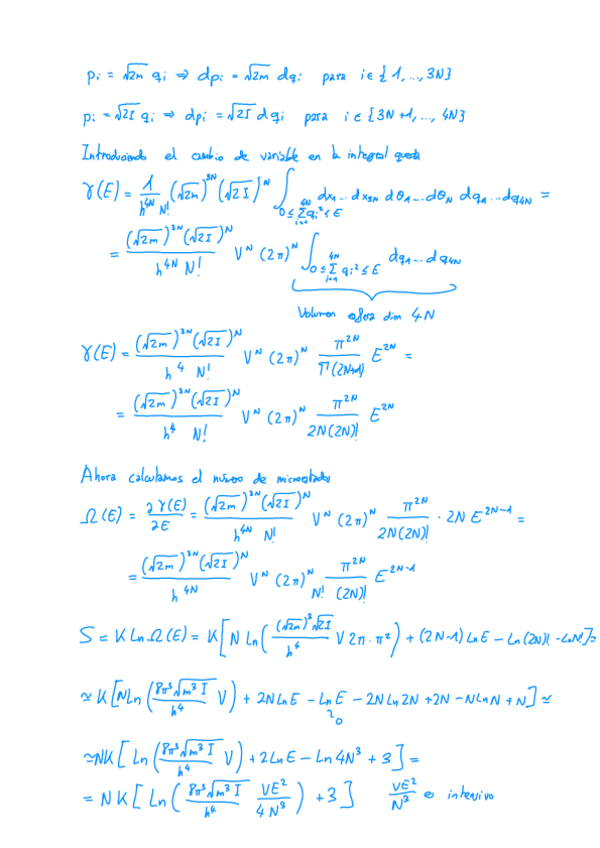 p_i = √2m q_i ⇒ dp_i = √2m dq_i para i ∈ {1, ..., 3N}
p_i = √2I q_i ⇒ dp_i = √2I dq_i para i ∈ {3N+1, ..., 4N}
Introduciendo el cambio de variable en la integral queda
γ(E) = 1/(h^{4N} N!) (√2m)^{3N} (√2I)^N ∫_{0 ≤ Σ_{i=1}^{4N} q_i² ≤ E} dx_1 ... dx_{3N} dθ_1 ... dθ_N dq_1 ... dq_{4N} =
= (√2m)^{3N} (√2I)^N / (h^{4N} N!) V^N (2π)^N ∫_{0 ≤ Σ_{i=1}^{4N} q_i² ≤ E} dq_1 ... dq_{4N}
Volumen esfera dim 4N
γ(E) = (√2m)^{3N} (√2I)^N / (h^4 N!) V^N (2π)^N π^{2N} / Γ(2N+1) E^{2N} =
= (√2m)^{3N} (√2I)^N / (h^4 N!) V^N (2π)^N π^{2N} / (2N(2N)!) E^{2N}
Ahora calculamos el número de microestados
Ω(E) = ∂γ(E)/∂E = (√2m)^{3N} (√2I)^N / (h^{4N} N!) V^N (2π)^N π^{2N} / (2N(2N)!) · 2N E^{2N-1} =
= (√2m)^{3N} (√2I)^N / h^{4N} V^N (2π)^N π^{2N} / (N! (2N)!) E^{2N-1}
S = K Ln Ω(E) = K [N Ln ((√2m)^3 √2I / h^4 V 2π · π²) + (2N-1) Ln E - Ln (2N)! - Ln N!] ≃
≃ K [N Ln (8π³ √m³ I / h^4 V) + 2N Ln E - Ln E - 2N Ln 2N + 2N - N Ln N + N] ≃
≃ 0
≃ NK [Ln (8π³ √m³ I / h^4 V) + 2 Ln E - Ln 4N³ + 3] =
= NK [Ln (8π³ √m³ I / h^4 VE² / 4N³) + 3] VE²/N³ es intensivo